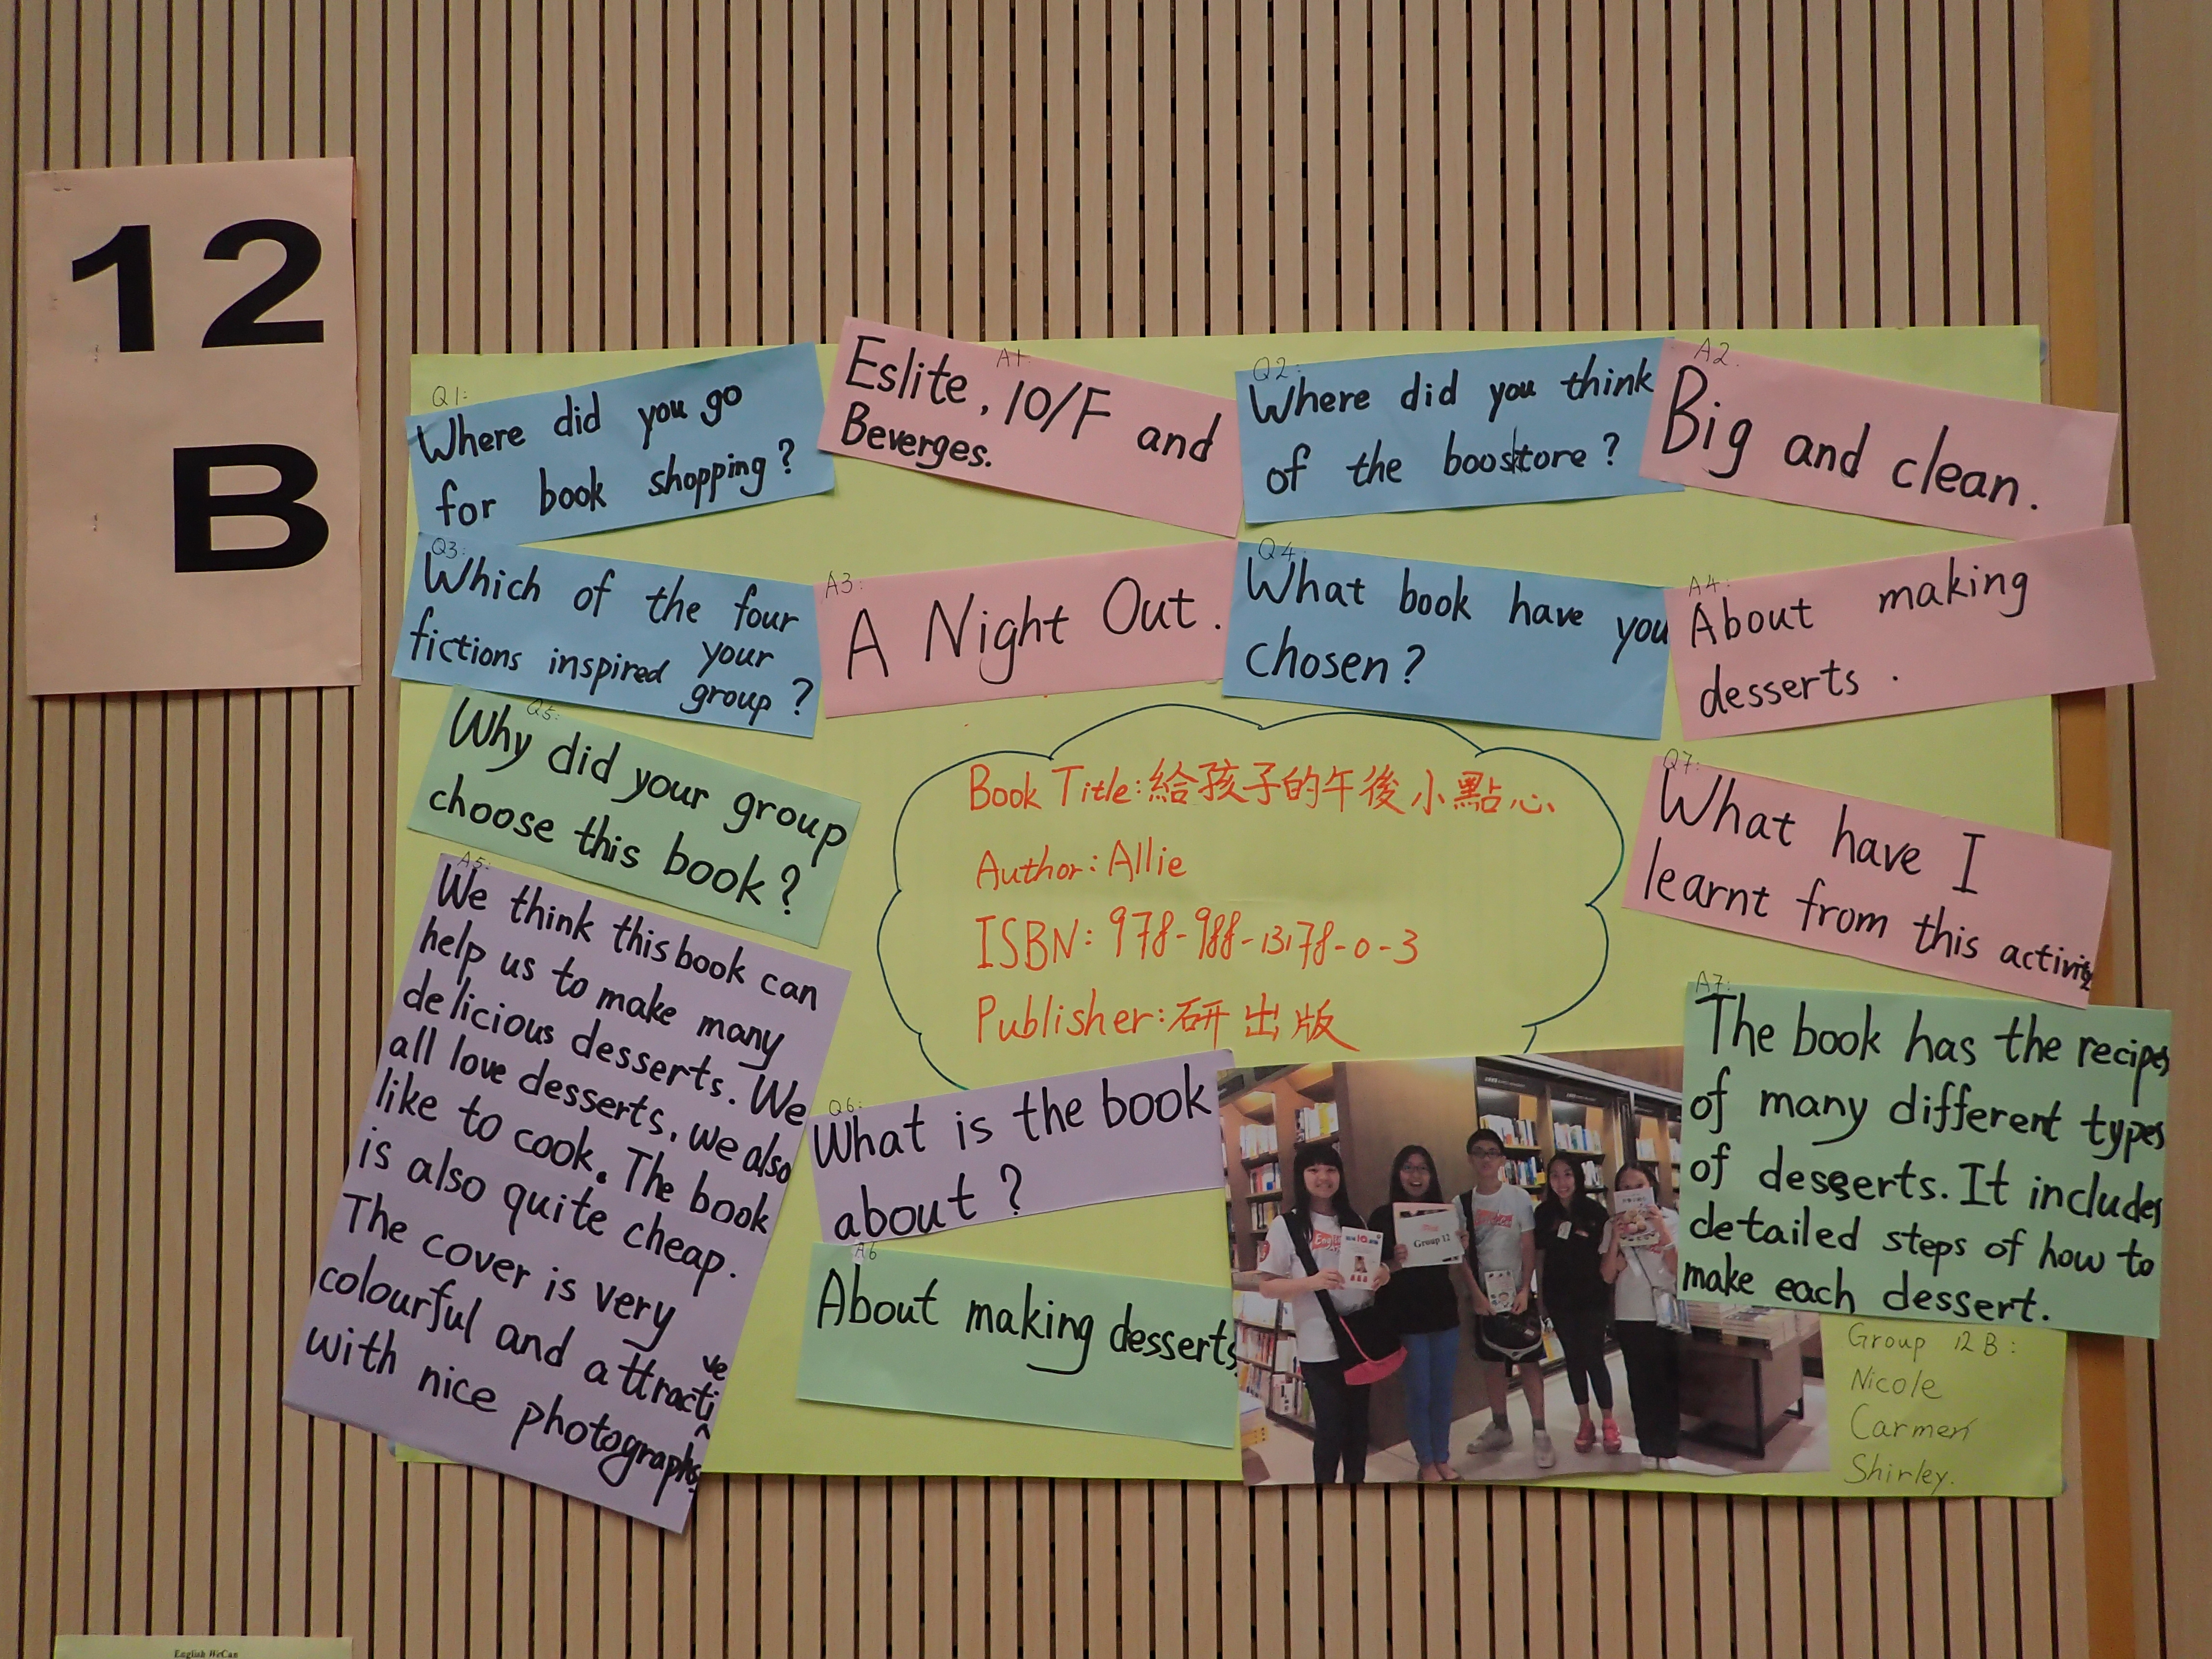 12
B
Q1:
Where did you go
for book shopping?
A1:
Eslite, 10/F and
Beverges.
Q2:
Where did you think
of the boostore?
A2.
Big and clean.
Q3:
Which of the four
fictions inspired your
group?
A3:
A Night Out.
Q4:
What book have you
chosen?
A4:
About making
desserts.
Q5:
Why did your group
choose this book?
A5:
We think this book can
help us to make many
delicious desserts. We
all love desserts, we also
like to cook. The book
is also quite cheap.
The cover is very
colourful and attractive
with nice photographs.
Book Title: 給孩子的午後小點心
Author: Allie
ISBN: 978-988-13178-0-3
Publisher: 研出版
Q6:
What is the book
about?
A6
About making desserts
Q7:
What have I
learnt from this activity
A7:
The book has the recipes
of many different types
of desserts. It includes
detailed steps of how to
make each dessert.
Group 12
Group 12 B:
Nicole
Carmen
Shirley.
English WeCan